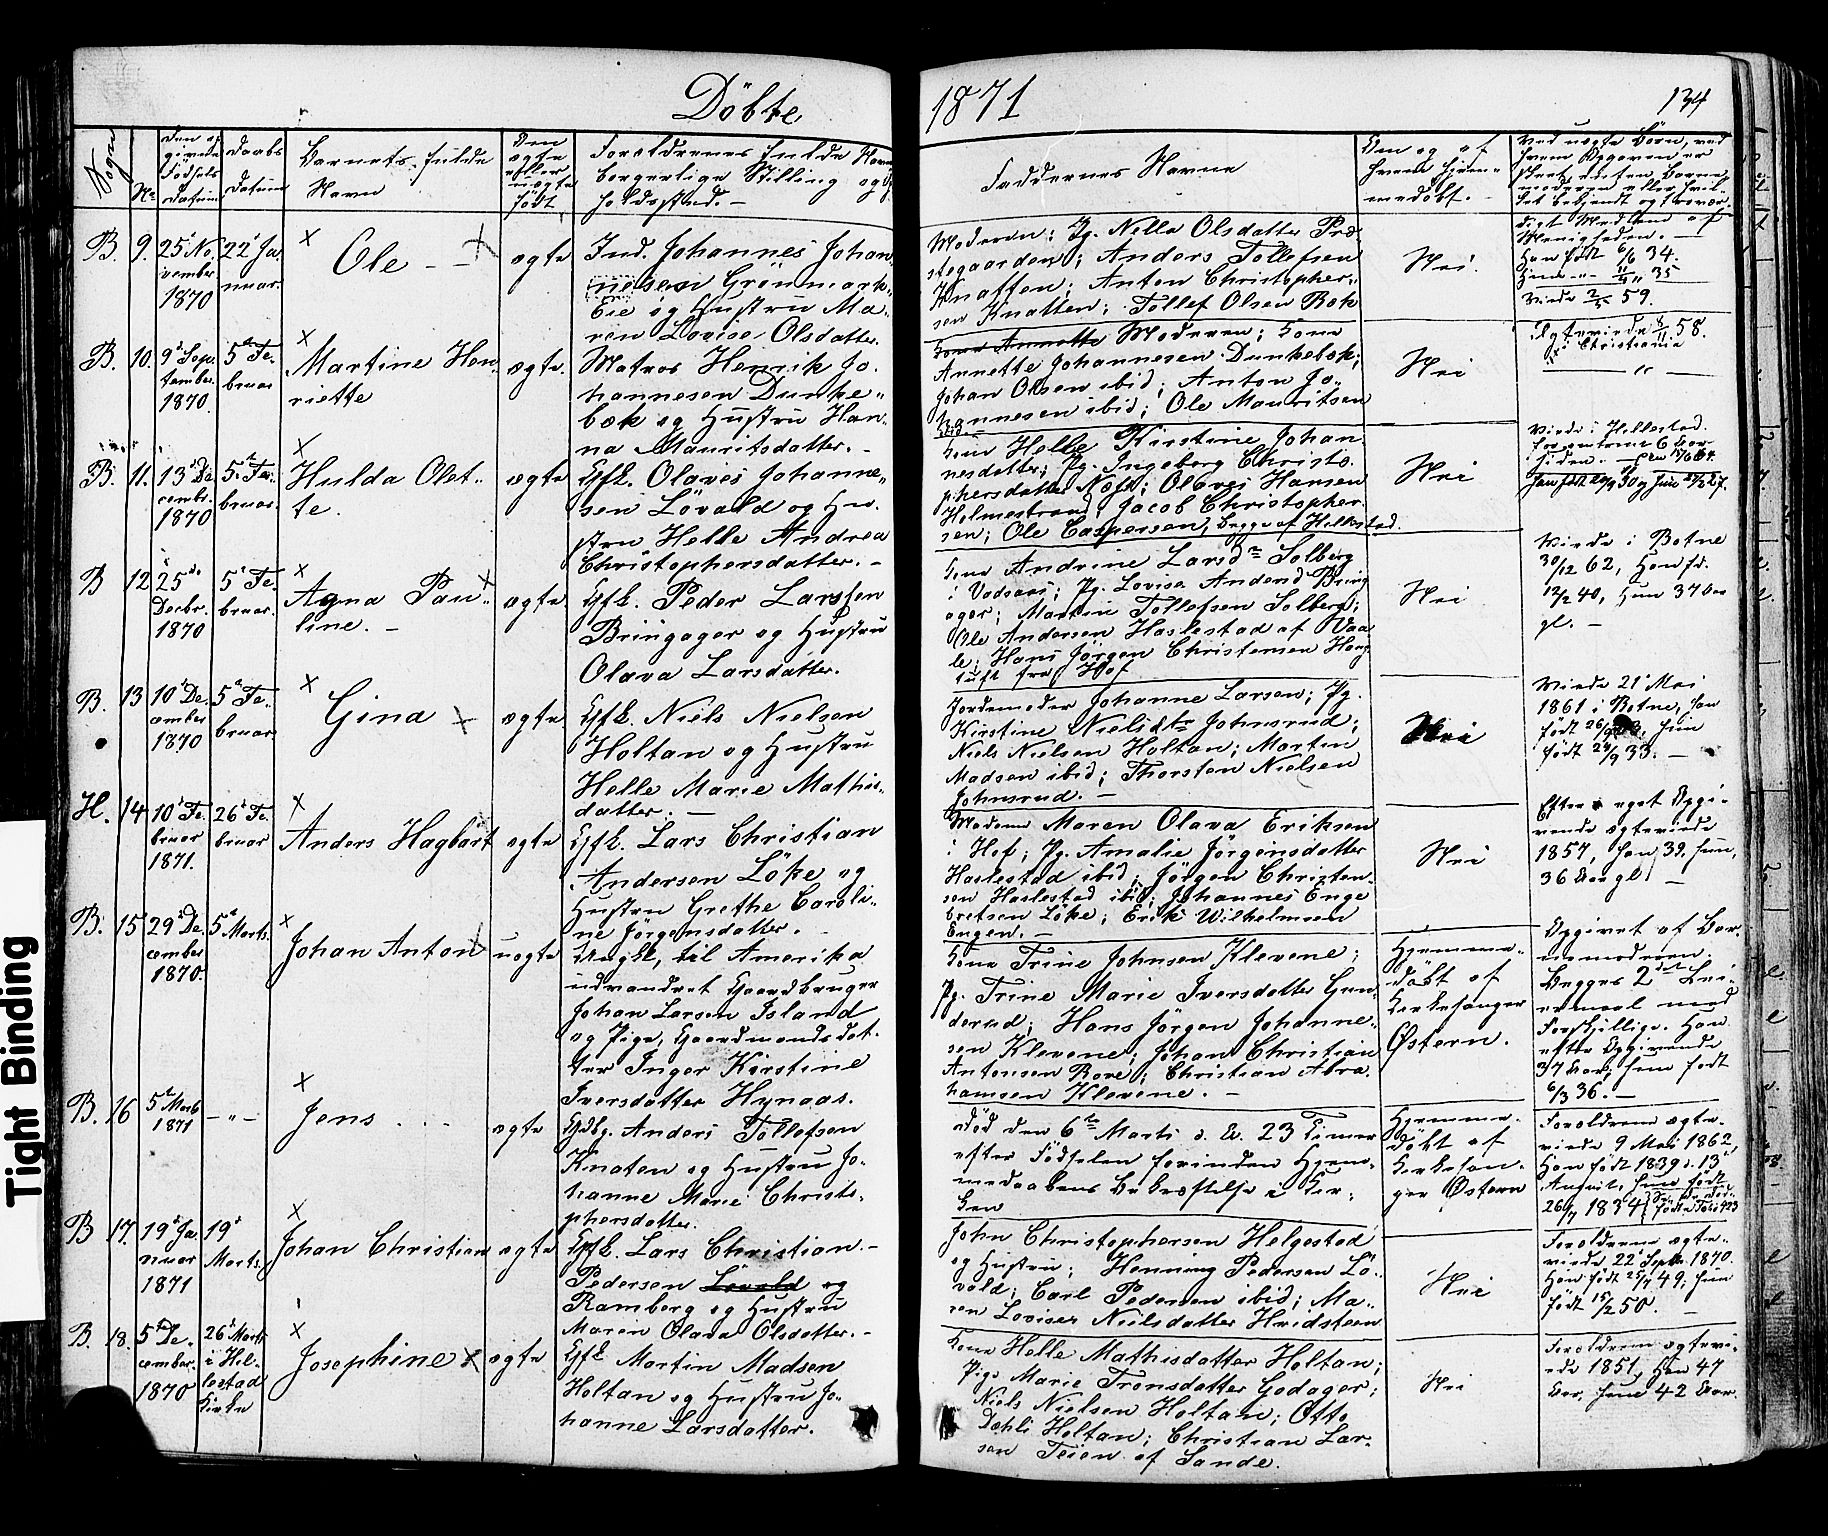 Döbte
1871
134
Sogn
No
Den op
givne
Fødsels
Datum
Daabs
Datum
Barnets fulde
Navn
Om
ægte
eller
uægte
født.
Forældrenes fulde Navn
borgerlige Stilling og
holdssted. -
Faddernes Navne
Om og af
hvem hjem-
medøbt. -
Ved uægte Børn, ved
hvem Opgaven er
skeet enten Barne-
moderen eller hvil-
ket bekjendt og trovær-
digt Medlem af
Menigheden. -
B. 9. 25d No
vember
1870
22d Ja
nuar.
Ole
ægte
Ind. Johannes Johan
nesen Grönmark-
Eie og Hustru Ma-
ren Lovise Olsdatter.
Moderen; Pg. Nella Olsdatter Præ
stegaarden; Anders Tollefsen
Knatten; Anton Christopher-
sen Knatten; Tollef Olsen Bok
Nei.
Han født 6/6 34.
Hun -"- 11/4 " 35
viede 2/5 59.
B. 10. 9d Sep.
tember
1870.
5te Fe-
bruar
Martine Hen
riette
ægte.
Matros Henrik Jo.
hannesen Dunke-
bæk og Hustru Han-
na Mauritsdatter. -
Kona Annette Moderen; Kona
Annette Johannesen Dunkebæk;
Johan Olsen ibid; Anton Jo-
hannesen ibid; Ole Mauritsen
ibid.
Nei
Ægteviede 58.
i Christiania
- " -
B. 11. 13d De
cembr.
1870
5te Fe-
bruar.
Hulda Olet-
te.
ægte
Gfk. Olaves Johanne-
sen Lövald og Hu-
stru Helle Andrea
Christophersdatter. -
Kona Helle Kirstine Johan
nesdatter; Pg. Ingeborg Christo-
phersdatter Næss; Olaves Hansen
Holmestrand; Jacob Christopher
sen; Ole Caspersen, begge af Hillestad.
Nei
Viede i Hillestad
for omtrent 6 Aar
siden.
B 12 25de
Decbr.
1870
5te Fe-
bruar.
Agna Pau-
line. -
ægte
Gfk. Peder Larssen
Bringager og Hustru
Olava Larsdatter.
Kona Andrine Larsdtr Solberg
i Vadsaas; Pg. Lovise Andersd Bring
ager; Martin Tollefsen Solberg;
Ole Andersen Haslestad af Vaa
le; Hans Jörgen Christensen Haug
tuft fra Hof
Nei
Viede i Botne
30/12 62, Han fd.
12/2 40, Hun 37 Aar
gl. -
B. 13 10d De-
cember
1870
5te Fe-
bruar.
Gina
ægte
Gfk. Niels Nielsen
Holtan og Hustru
Helle Marie Mathis-
datter. -
Jordemoder Johanne Larsen; Pg.
Kirstine Nielsdtr Johnsrud;
Niels Nielsen Holtan; Martin
Madsen ibid; Thorsten Nielsen
Johnsrud. -
Nei
Viede 21d Mai
1861 i Botne, han
født 26/9, hun
født 24/9 33. -
H. 14 10d Fe-
bruar
1871.
26d Fe
bruar
Anders Hagbart
ægte
Gfk. Lars Christian
Andersen Löke og
Hustru Grethe Caroli-
ne Jörgensdatter.
Madame Maren Olava Eriksen
i Hof; Pg. Amalie Jörgensdatter
Haslestad ibid; Jörgen Christen-
sen Haslestad ibid; Johannes Enge
bretsen Löke; Erik Wilhelmsen
Engen. -
Nei
Efter eget Opgi-
vende ægteviede
1857, han 39, hun,
36 Aar gl. -
B. 15 29d De.
cember
1870.
5te Marts.
Johan Anton
uægte
Ungk., til Amerika
udvandret Gaardbruger
Johan Larsen Island
og Pige, Gaardmandsdat-
ter Inger Kirstine
Iversdatter Hynaas.
Kona Trine Johnsen Klevene;
Pg. Trine Marie Iversdatter Gun
derud; Hans Jörgen Johanne-
sen Klevene; Johan Christian
Antonsen Rove; Christian Abra
hamsen Klevene. -
Hjemme-
døbt af
Kirkesanger
Østern.
Opgivet af Bar-
nemoderen.
Begges 2det Lei-
ermaal med
Forskjellige. Han
efter Opgivende
37 Aar; hun født
6/3 36. -
B. 16 5te Marts
1871
- " -
Jens
ægte
Gdbg. Anders Tollefsen
Knaten og Hustru Jo-
hanne Marie Christo-
phersdatter.
Död den 6te Marts d. A. 23 Timer
efter Födselen forinden Hjem-
medaabens Bekræftelse i Kir-
ken
Hjemme-
døbt af
Kirkesan-
ger Østern
Forældrene ægte-
viede 9 Mai 1862
Han født 1839 d. 13de
August, hun født
26/7 1834
B 17. 19d Ja-
nuar
1871
19d
Marts.
Johan Christian
ægte
Gfk. Lars Christian -
Pedersen Lövald og
Ramberg og Hustru
Maren Olava Olsdatter. -
John Christophersen Helgestad
og Hustru; Henning Pedersen Lö-
vald; Carl Pedersen ibid; Ma-
ren Lovises Nielsdatter Hvidsteen
Nei
Forældrene ægte-
viede 22d Septbr. 1870.
Han født 25/7 49; hun
født 15/2 50. -
B. 18. 5d De-
cember.
1870
26d Marts
i Hil-
lestad
Kirke
Josephine
ægte
Gfk Martin Madsen
Holtan og Hustru Jo-
hanne Larsdatter.
Kona Helle Mathisdatter Holtan;
Pige Marie Tronsdatter Godager;
Niels Nielsen Holtan; Otto
Dehli Holtan; Christian Lar-
sen Teien af Sande.
Nei
Forældrene ægtevi-
ede 1851, Han 47
Aar, hun 42 Aar.
Tight Binding